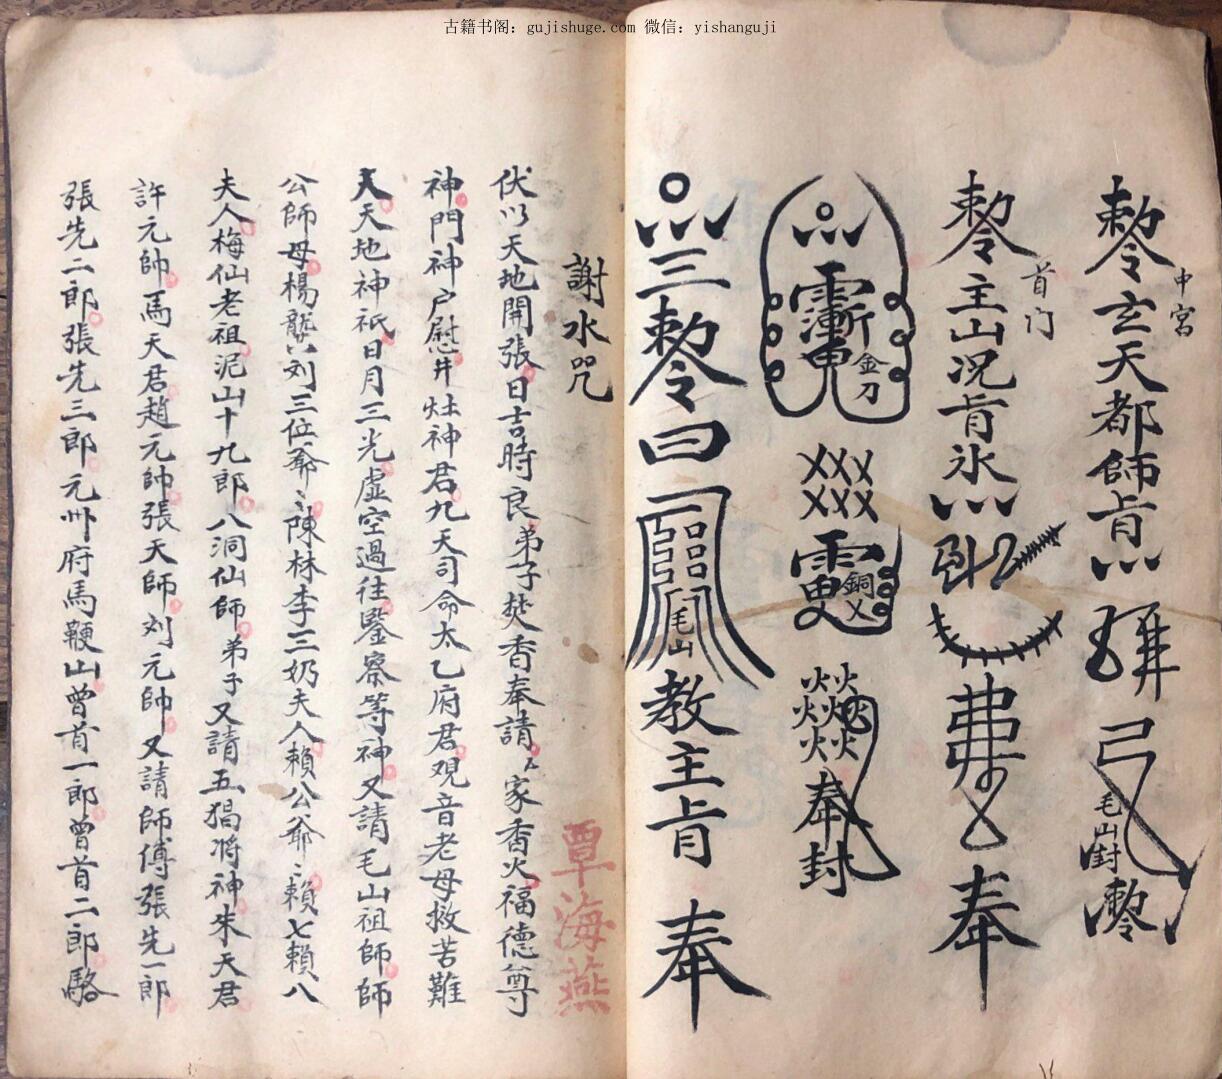 古籍书阁：gujishuge.com 微信：yishanguji
申宮
敕令玄天都師肯
弓
毛山封
首门
敕令主山况肯氷
奉
金刀
銅
奉封
三敕令曰
毛山
教主肯奉
謝水咒
伏以天地開張日吉時良弟子焚香奉請家香火福德尊
神門神户慰井灶神君九天司命太乙府君观音老母救苦難
天天地神祇日月三光虚空過往鑒察等神又請毛山祖師師
公師母楊龔刘三位爺〻陳林李三奶夫人賴公爺〻賴七賴八
夫人梅仙老祖泥山十九郎八洞仙師弟子又請五猖将神朱天君
許元帥馬天君趙元帥張天師刘元帥又請師傅張先一郎
張先二郎張先三郎元州府馬鞭山曾首一郎曾首二郎駱
覃海燕